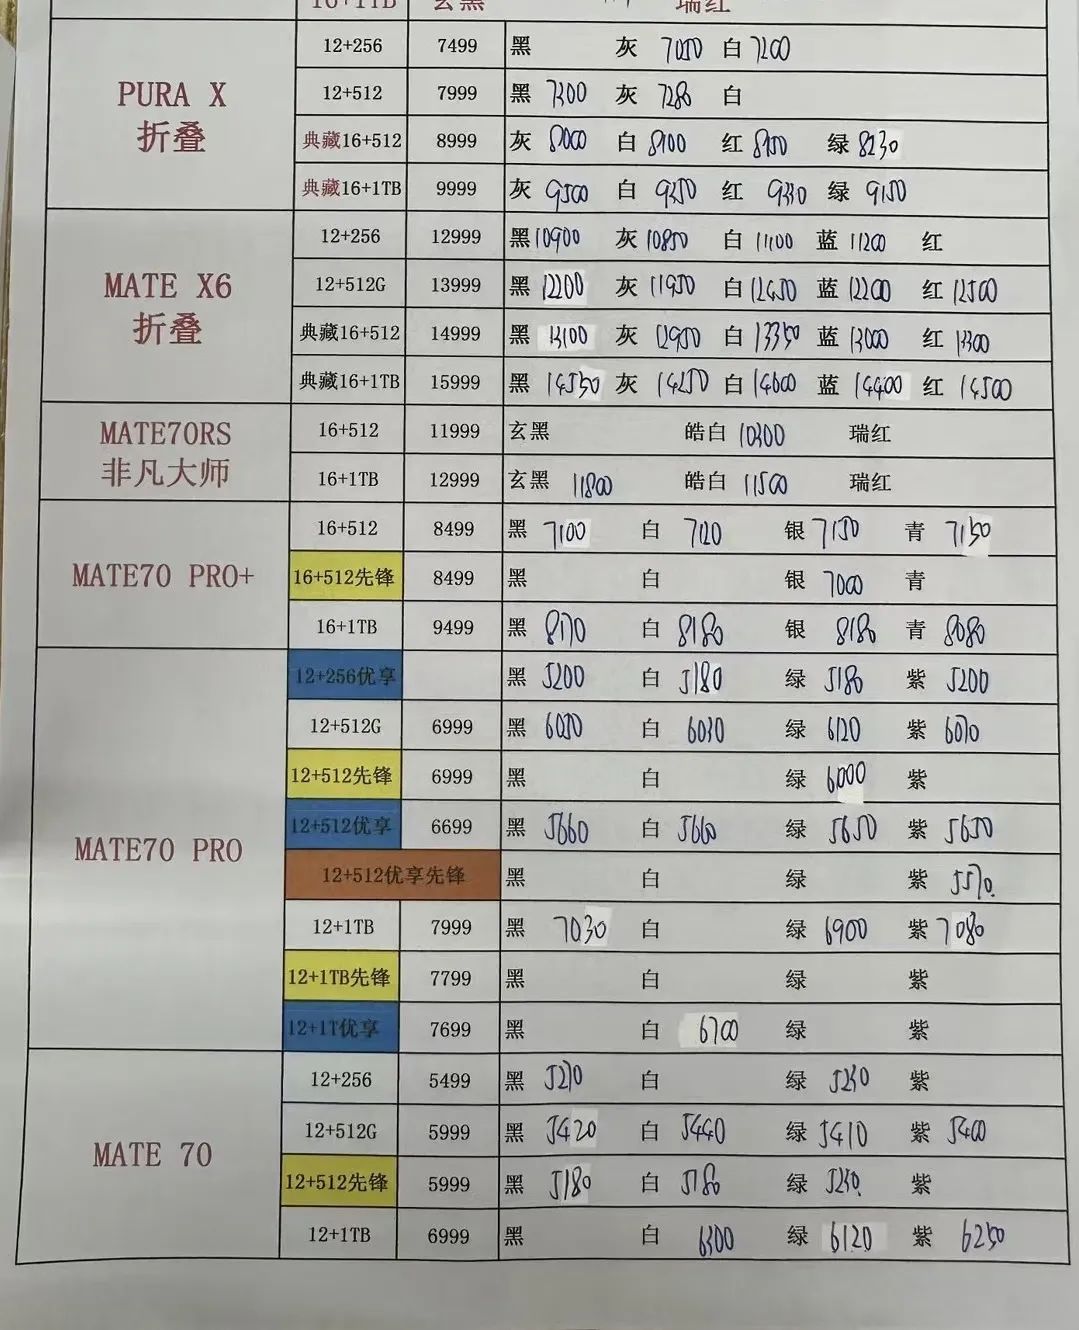 16+1TB 玄黑 瑞红
PURA X
折叠
12+256 7499 黑 灰 7050 白 7200
12+512 7999 黑 7300 灰 7280 白
典藏16+512 8999 灰 8000 白 8100 红 8150 绿 8230
典藏16+1TB 9999 灰 9500 白 9350 红 9330 绿 9150
MATE X6
折叠
12+256 12999 黑 10900 灰 10850 白 11100 蓝 11200 红
12+512G 13999 黑 12200 灰 11950 白 12450 蓝 12200 红 12500
典藏16+512 14999 黑 13100 灰 12950 白 13350 蓝 13000 红 13300
典藏16+1TB 15999 黑 14550 灰 14250 白 14600 蓝 14400 红 14500
MATE70RS
非凡大师
16+512 11999 玄黑 皓白 10300 瑞红
16+1TB 12999 玄黑 11800 皓白 11500 瑞红
MATE70 PRO+
16+512 8499 黑 7100 白 7120 银 7150 青 7150
16+512先锋 8499 黑 白 银 7000 青
16+1TB 9499 黑 8170 白 8180 银 8180 青 8080
MATE70 PRO
12+256优享 黑 5200 白 5180 绿 5180 紫 5200
12+512G 6999 黑 6050 白 6030 绿 6120 紫 6070
12+512先锋 6999 黑 白 绿 6000 紫
12+512优享 6699 黑 5660 白 5660 绿 5650 紫 5650
12+512优享先锋 黑 白 绿 紫 5570
12+1TB 7999 黑 7030 白 绿 6900 紫 7080
12+1TB先锋 7799 黑 白 绿 紫
12+1T优享 7699 黑 白 6700 绿 紫
MATE 70
12+256 5499 黑 5270 白 绿 5250 紫
12+512G 5999 黑 5420 白 5440 绿 5410 紫 5400
12+512先锋 5999 黑 5180 白 5180 绿 5250 紫
12+1TB 6999 黑 白 6300 绿 6120 紫 6250